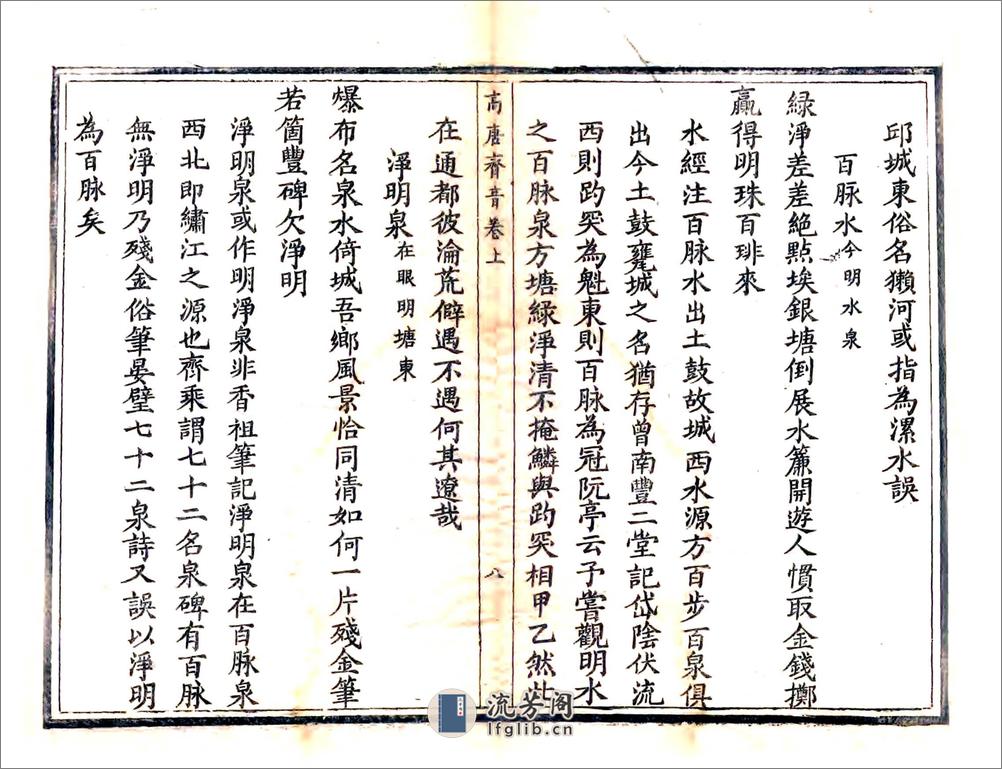 邱城東俗名獺河或指為漯水誤
百脉水今明水泉
綠淨差差絕點埃銀塘倒展水簾開遊人慣取金錢擲
贏得明珠百琲來
水經注百脉水出土鼓故城西水源方百步百泉俱
出今土鼓甕城之名猶存曾南豐二堂記岱陰伏流
西則趵突為魁東則百脉為冠阮亭云予嘗觀明水
之百脉泉方塘綠淨清不掩鱗與趵突相甲乙然此
高唐齊音卷上
八
在通都彼淪荒僻遇不遇何其遼哉
淨明泉在眼明塘東
爆布名泉水倚城吾鄉風景恰同清如何一片殘金筆
若箇豐碑欠淨明
淨明泉或作明淨泉非香祖筆記淨明泉在百脉泉
西北即繡江之源也齊乘謂七十二名泉碑有百脉
無淨明乃殘金俗筆晏璧七十二泉詩又誤以淨明
為百脉矣
流芳阁
lfglib.cn